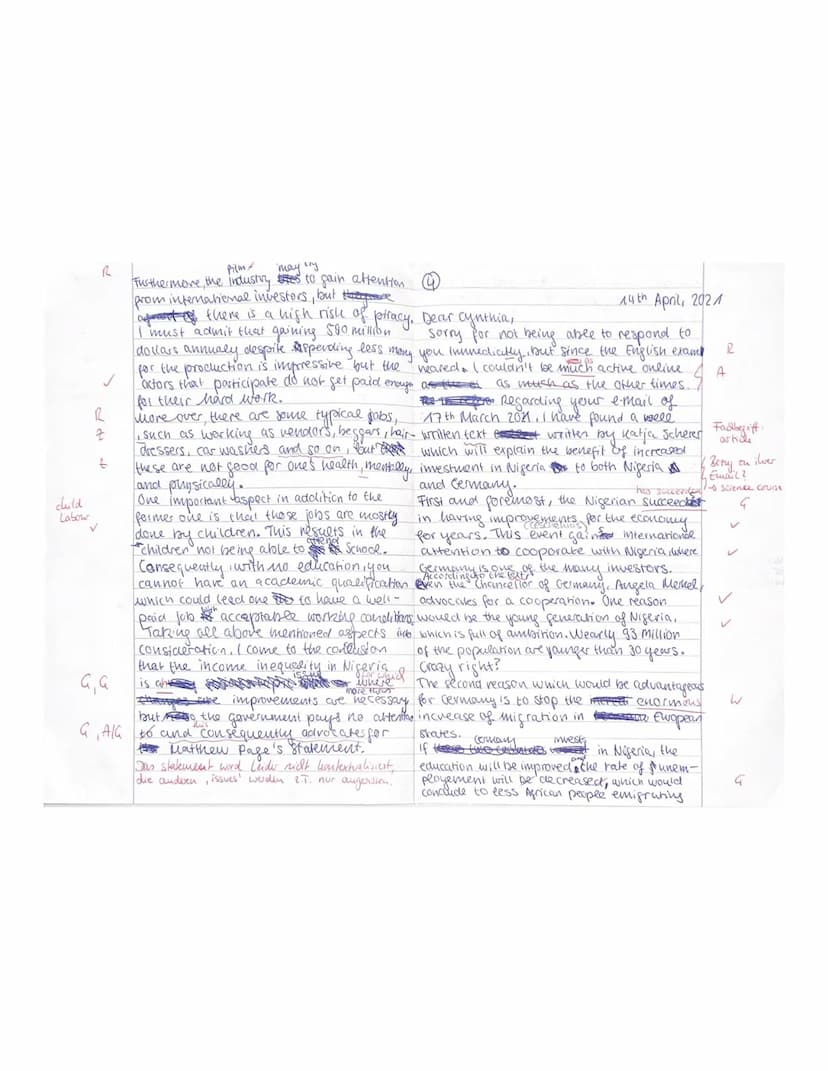 R
film may try
Furthermore, the Industry to gain attention
from international investors, but
there is a high risk of piracy.
I must admit that gaining 590 million
dollars annualy despite spending less money
for the production is impressive but the
✓ actors that participate do not get paid enough
for their hard work.
R More over, there are some typical jobs,
Z , such as working as vendors, beggars, hair-
dressers, car washers and so on, but
Z these are not good for one's health, mentally
and physically.
One important aspect in addition to the
child former one is that these jobs are mostly
Labour
✓ done by children. This results in the
attend
children not being able to School.
Consequently, with no education, you
cannot have an academic qualification
which could lead one to have a well-
paid job with acceptable working conditions.
Taking all above mentioned aspects into
consideration, I come to the conclusion
that the income inequality in Nigeria
issue for which
G, G is an where
more than
improvements are necessary
but the government pays no attention
this
G, A/G to and consequently advocates for
Matthew Page's Statement.
Das Statement wird leider nicht kontextualisiert,
die anderen 'issues' werden z.T. nur angerissen.
④
14th April, 2021
Dear Cynthia,
Sorry for not being able to respond to
you immediatly, but since the English exam R
as
neared. I couldn't be much active online A
as much as the other times.
Regarding your e-mail of
17th March 2021, I have found a well Fachbegriff:
article
written text written by Katja Scherer
which will explain the benefit of increased
investment in Nigeria to both Nigeria Bezug zu ihrer
Email?
and Germany. → science course
has succeeded
First and foremost, the Nigerian succeeded G
in having improvements for the economy ✓
for years. This event gains international
attention to cooporate with Nigeria where ✓
Germany is one of the many investors.
According to the text,
even the Chancellor of Germany, Angela Merkel,
advocates for a cooperation. One reason ✓
would be the young generation of Nigeria, ✓
which is full of ambition. Nearly 93 Million
of the population are younger than 30 years.
Crazy right?
The second reason which would be advantageous
for Germany is to stop the enormous W
increase of migration in European
states.
Germany invests
If in Nigeria, the
and
education will be improved, the rate of unem-
ployement will be decreased, which would G
conclude to less African people emigrating